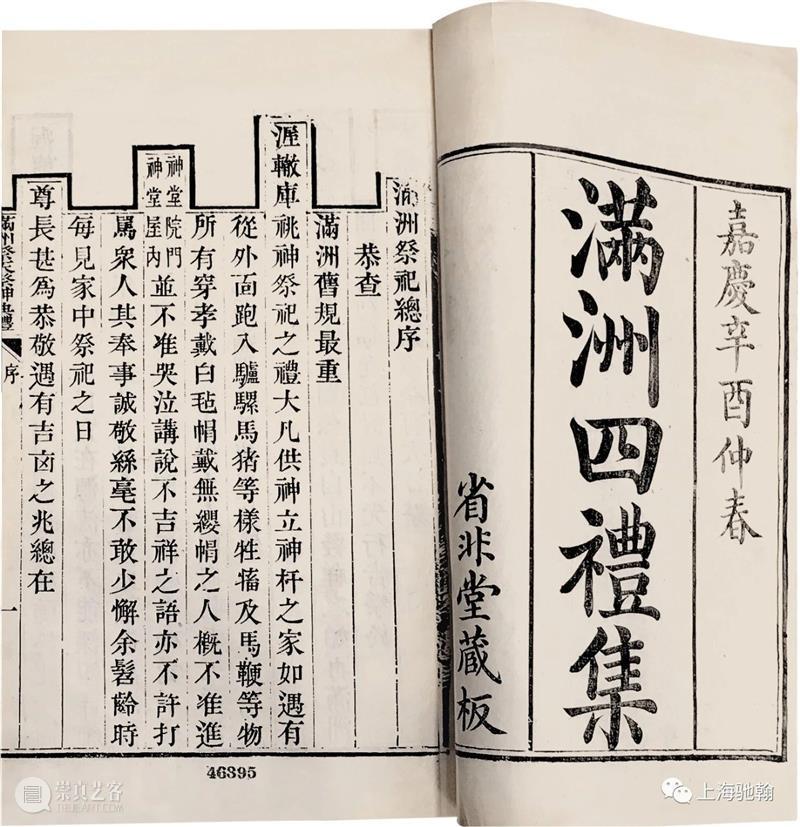 嘉慶辛酉仲春
滿洲四禮集
省非堂藏板
滿洲祭祀總序
恭查
滿洲舊規最重
渥轍庫祧神祭祀之禮大凡供神立神杆之家如遇有
從外面跑入驢騾馬猪等樣牲畜及馬鞭等物
所有穿孝戴白毡帽戴無纓帽之人概不准進
神堂院門
神堂屋內並不准哭泣講說不吉祥之語亦不許打
罵衆人其奉事誠敬絲毫不敢少懈余髫齡時
每見家中祭祀之日
尊長甚爲恭敬遇有吉凶之兆總在
序
一
46395
崇真艺客
上海驰翰